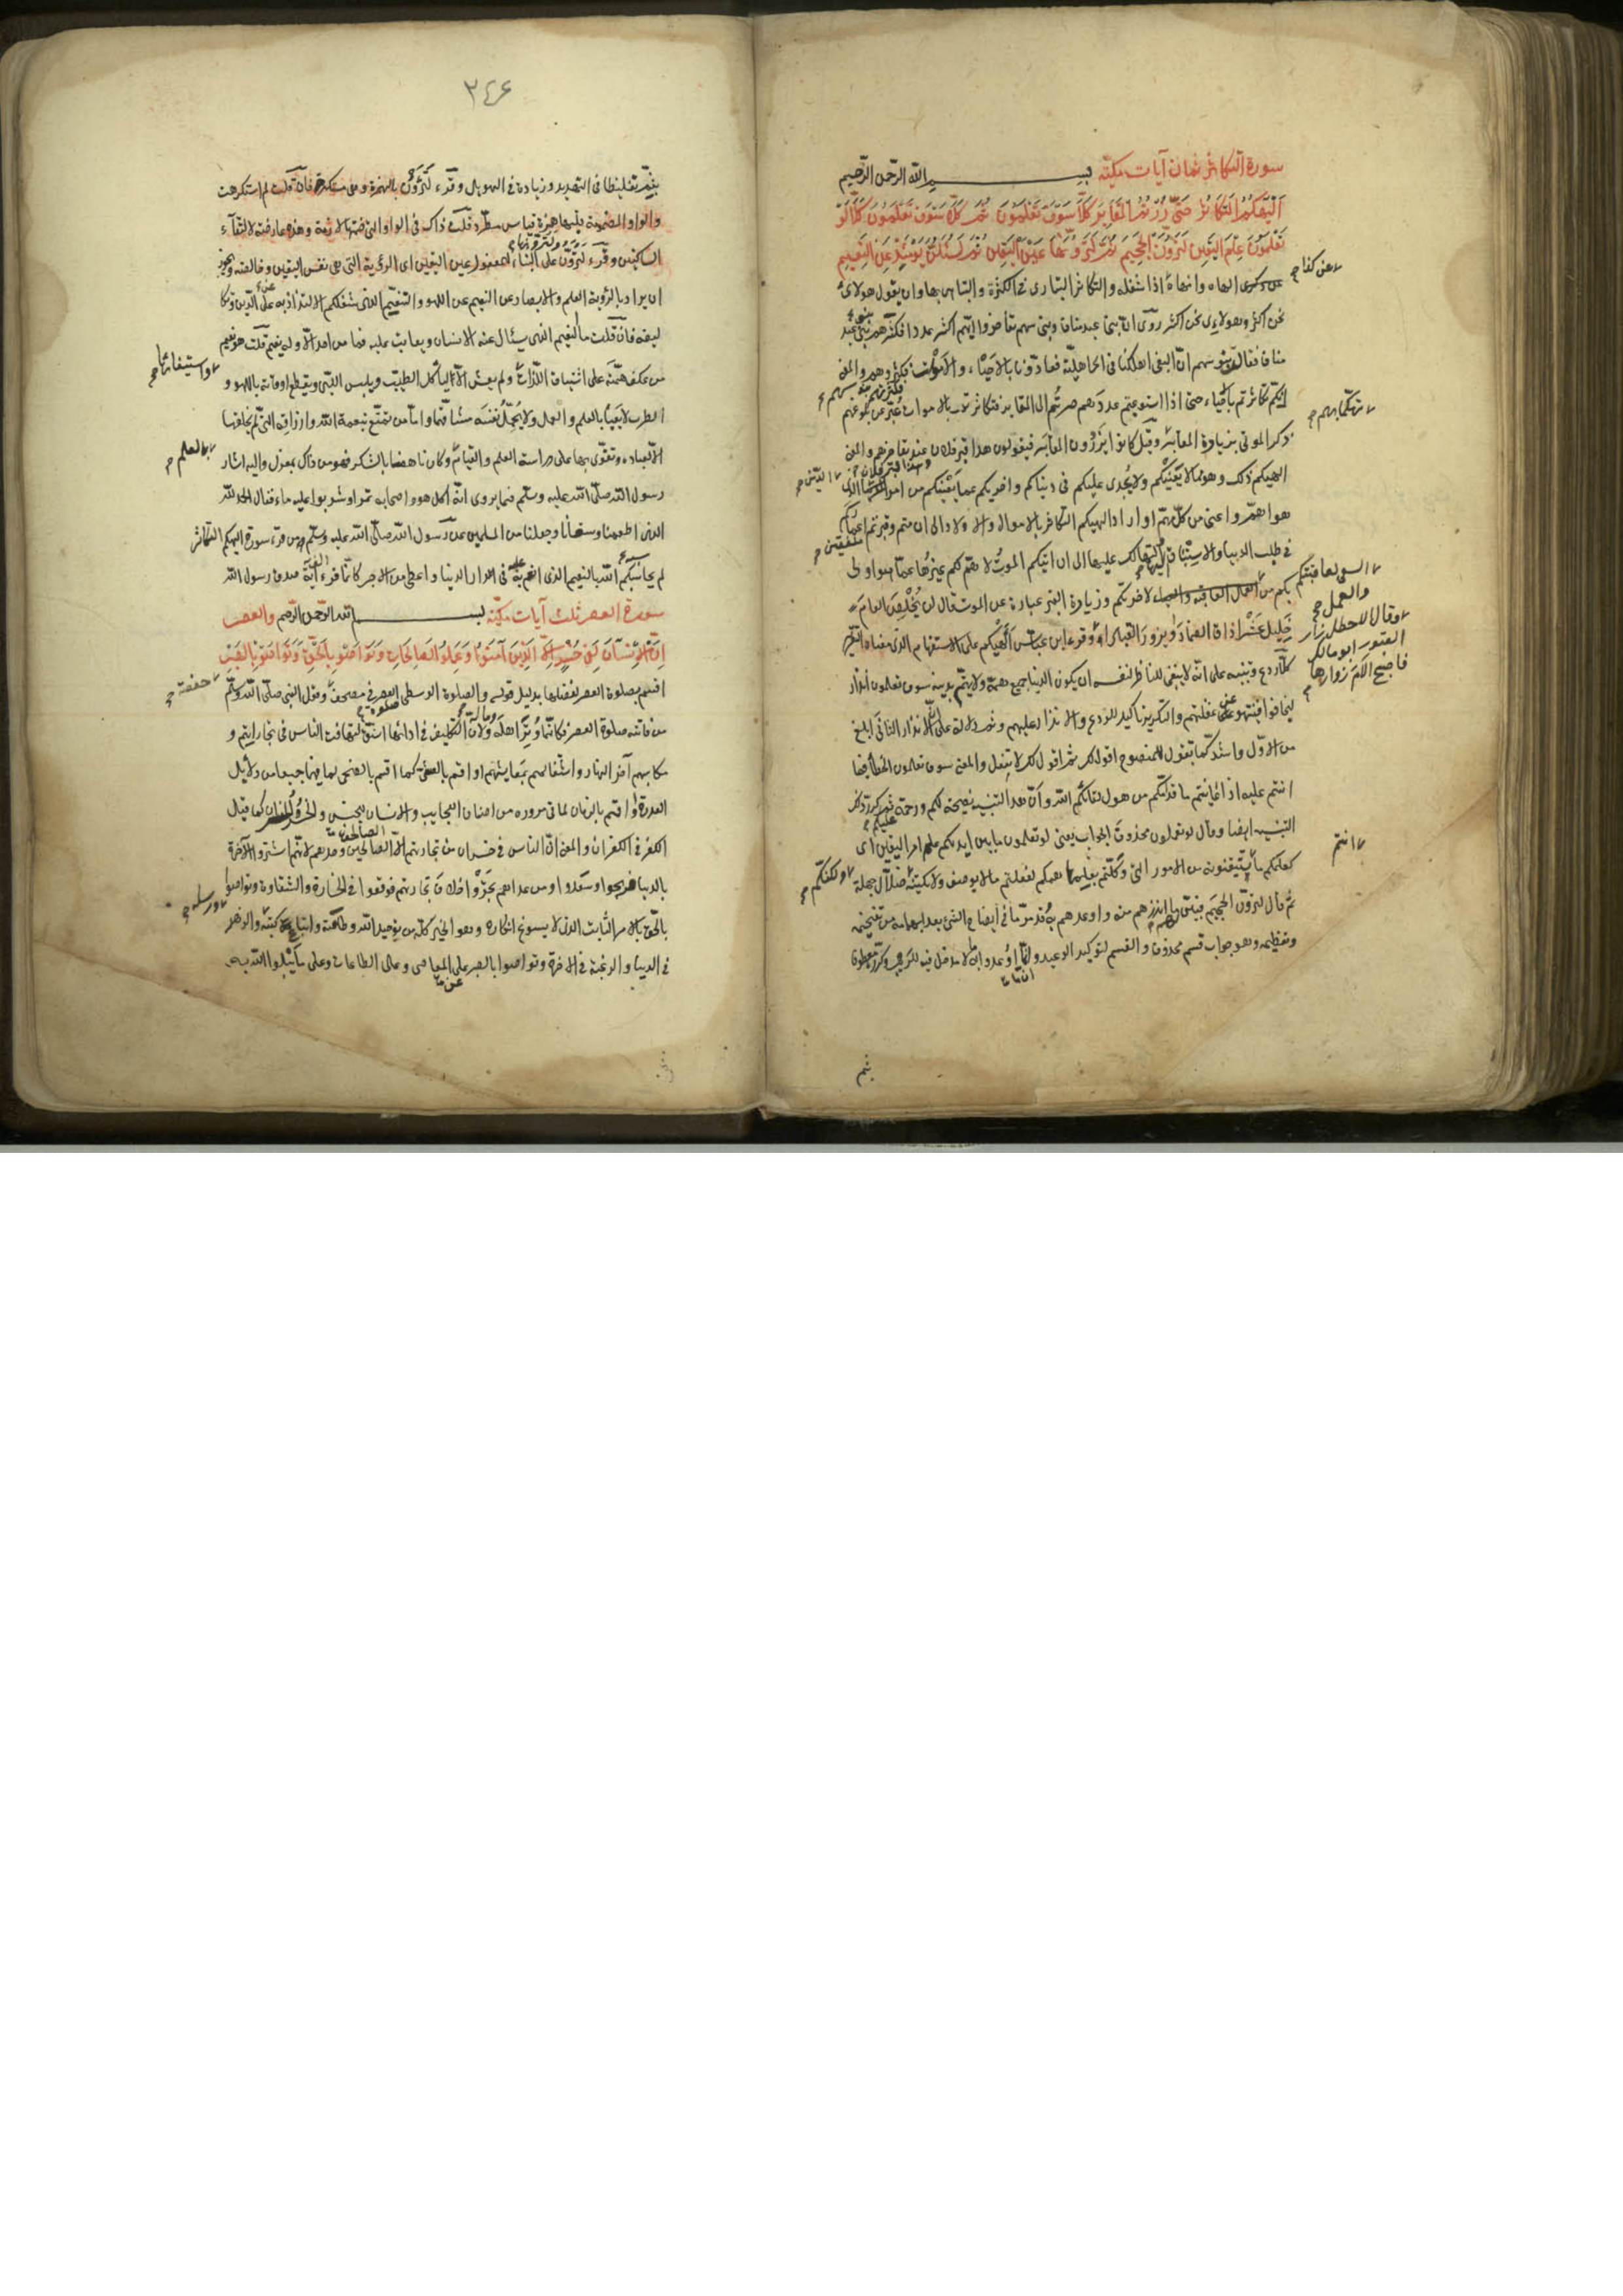 سورة التكاثر ثمان آيات مكيّة بسم الله الرّحمن الرّحيم
ألهيكم التكاثر حتّى زرتم المقابر كلّا سوف تعلمون ثمّ كلّا سوف تعلمون كلّا لو
تعلمون علم اليقين لترونّ الجحيم ثمّ لترونّها عين اليقين ثمّ لتسئلنّ يومئذ عن النّعيم
الهاه وانهاه اذا شغله والتكاثر التبارى فى الكثرة والتباهى بها وان يقول هولاء
عن كذا
نحن اكثر وهولاء نحن اكثر روى انّ بنى عبد مناف وبنى سهم تفاخروا ايّهم اكثر عددا فكثرهم بنو عبد
مناف فقالت بنو سهم انّ البغى اهلكنا فى الجاهليّة فعادّونا بالاحياء والاموات فكثرهم والمعنى
بنو سهم
انّكم تكاثرتم بالاحياء حتى اذا استوعبتم عددهم صرتم الى المقابر فتكاثرتم بالاموات عبّر عن بلوغهم
تهكّما بهم
ذكر الموتى بزيارة المقابر وقيل كانوا يزورون المقابر فيقولون هذا قبر فلان عند تفاخرهم والمعنى
وهذا قبر فلان
الهيكم ذلك وهو ممّا لا يعنيكم ولا يجدى عليكم فى دنياكم واخريكم عما يعنيكم من امر الدّين الذى
هو اهمّ واعنى من كلّ مهمّ او اراد الهيكم التكاثر بالاموال والاولاد الى ان متم وقبرتم
منفقين اعماركم
فى طلب الدنيا والاستباق اليها والتهالك عليها الى ان اتيكم الموت لا همّ لكم غيرها عمّا هو اولى
بكم من السعى لعاقبتكم والعمل لاخرتكم وزيارة القبر عبارة عن الموت قال لن يخلص العام
خليل عشرا ذاق الضماد او يزور القبرا وقال الاخطل زار القبور ابو مالك فاصبح الأم زوّارها وقرء ابن عباس أألهيكم على الاستفهام الذى معناه التقرير
كلّا ردع وتنبيه على انّه لا ينبغى للناظر لنفسه ان يكون الدنيا جميع همّه ولا يهتمّ بدينه سوف تعلمون انذار
ليخافوا فينتبهوا عن غفلتهم والتكرير تاكيد للردع والانذار عليهم وثمّ دلالة على انّ الانذار الثانى ابلغ
من الاوّل واشدّ كما تقول للمنصوح اقول لك ثمّ اقول لك لا تفعل والمعنى سوف تعلمون الخطأ فيما
انتم
انتم عليه اذا عاينتم ما قدّامكم من هول لقاء الله وانّ هذا التنبيه نصيحة لكم ورحمة عليكم ثمّ كرّر
التنبيه ايضا وقال لو تعلمون محذوف الجواب يعنى لو تعلمون ما بين ايديكم علم امر اليقين اى
كعلمكم ما تتيقّنونه من الامور التى وكّلتم بعلمها هممكم لفعلتم ما لا يوصف ولا يكتنه ولكنّكم ضلّال جهلة
ثمّ قال لترونّ الجحيم فبيّن لهم ما انذرهم منه واوعدهم به وقد مرّ ما فى ايضاح الشئ بعد ابهامه من تفخيمه
وتعظيمه وهو جواب قسم محذوف والقسم لتوكيد الوعيد وانّ ما اوعدوا به لا مدخل فيه للريب وكرّر معطوفا
بثم
٣٤٦
بثمّ تغليظا فى التهديد وزيادة فى التهويل وقرء لترؤنّ بالهمزة وهى مستكرهة فان قلت لم استكرهت
والواو المضمومة قبلها همزة قياس مطّرد قلت ذاك فى الواو التى ضمّتها لازمة وهذه عارضة لالتقاء
السّاكنين وقرء لترونّ ولترونّها على البناء للمفعول عين اليقين اى الرؤية التى هى نفس اليقين وخالصته ويجوز
ان يراد بالرؤية العلم والابصار عن النعيم عن اللهو والتنعّم الذى شغلكم الالتذاذ به عن الدّين وتكا
ليفه فان قلت ما النعيم الذى يسئل عنه الانسان ويعاتب عليه فما من احد الّا وله نعيم قلت هو نعيم
من عكف همّته على استيفاء اللّذّات ولم يعش الّا لياكل الطيّب ويلبس اللّيّن ويقطع اوقاته باللهو و
واستيفائها
الطرب لا يعبأ بالعلم والعمل ولا يحمّل نفسه مشاقّهما وامّا من تمتّع بنعمة الله وارزاقه التى لم يخلقها
الّا لعباده وتقوّى بها على دراسة العلم والقيام بالعمل وكان ناهضا بالشكر فهو من ذاك بمعزل واليه اشار
رسول الله صلّى الله عليه وسلّم فيما يروى انّه اكل هو واصحابه تمرا وشربوا عليه ماء فقال الحمد لله
الذى اطعمنا وسقانا وجعلنا من المسلمين عن رسول الله صلّى الله عليه وسلّم من قرء سورة الهيكم التكاثر
لم يحاسبه الله بالنعيم الذى انعم به عليه فى الدار الدنيا واعطى من الاجر كانّما قرء الف آية صدق رسول الله
سورة العصر ثلث آيات مكيّة بسم الله الرّحمن الرّحيم والعصر
إنّ الإنسان لفى خسر إلّا الّذين آمنوا وعملوا الصّالحات وتواصوا بالحقّ وتواصوا بالصّبر
اقسم بصلوة العصر لفضلها بدليل قوله والصلوة الوسطى صلوة العصر فى مصحف حفصة وقول النبى صلّى الله عليه وسلّم
من فاتته صلوة العصر فكانّما وتر اهله وماله ولانّ التكليف فى ادائها اشقّ لتهافت الناس فى تجاراتهم و
مكاسبهم آخر النهار واشتغالهم بمعايشهم او اقسم بالعشىّ كما اقسم بالضحى لما فيهما جميعا من دلائل
القدرة او اقسم بالزمان لما فى مروره من اصناف العجايب والانسان للجنس والخسر الخسران كما قيل
الكفر فى الكفران والمعنى انّ الناس فى خسران من تجارتهم الّا الصّالحين وحدهم لانّهم اشتروا الآخرة
بالدنيا فربحوا وسعدوا ومن عداهم تجروا خلاف تجارتهم فوقعوا فى الخسارة والشقاوة وتواصوا
بالحقّ بالامر الثابت الذى لا يسوغ انكاره وهو الخير كلّه من توحيد الله وطاعته واتباع كتبه ورسله والزهد
فى الدنيا والرغبة فى الاخرة وتواصوا بالصبر عن المعاصى وعلى الطاعات وعلى ما يبلوا الله به